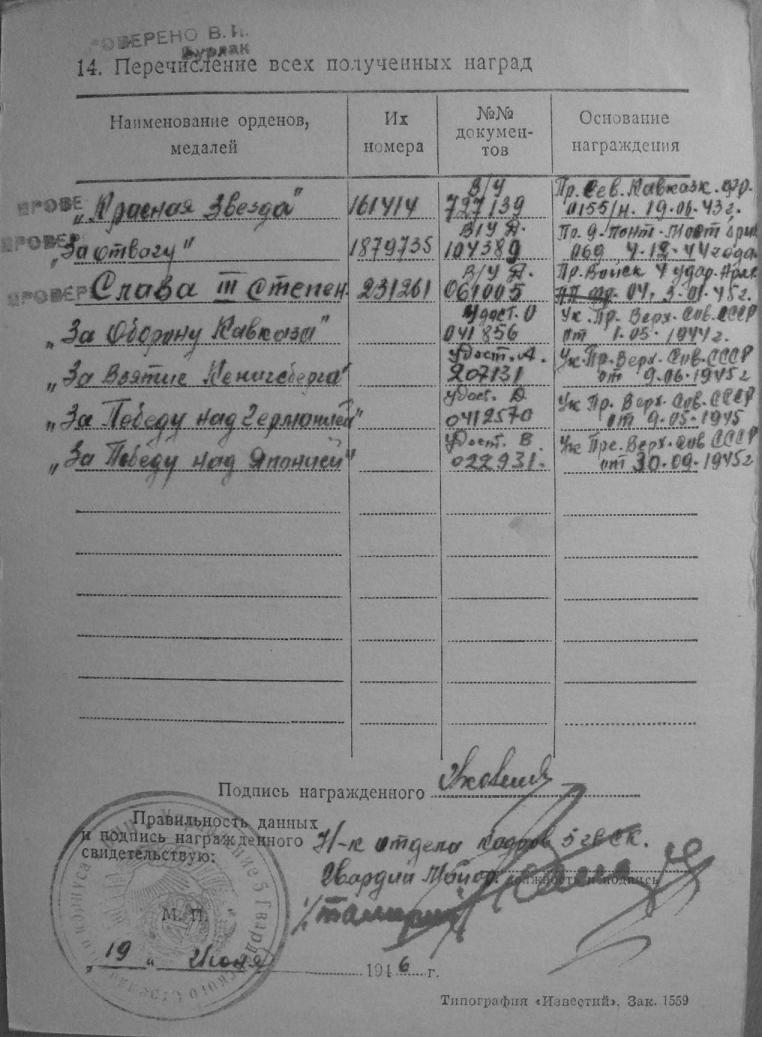 ОВЕРЕНО В. И.
Бурлак
14. Перечисление всех полученных наград
Наименование орденов, медалей
Их номера
№№ документов
Основание награждения
ПРОВЕ
„Красная Звезда"
161414
В/Ч
727139
Пр. Сев. Кавказк. фр.
0155/н. 19.06.43г.
ПРОВЕР
„За отвагу"
1879735
В/Ч Д.
104389
Пр. 9. Понт. Мост. бриг
069 4.12.44года
ПРОВЕР
Слава III Степен.
231261
В/Ч Д.
061005
Пр. Войск 4 удар. Арм.
04. 3.01.45г.
„За Оборону Кавказа"
Удост. О
041856
Ук. Пр. Верх. Сов. СССР
от 1.05.1944г.
„За Взятие Кенигсберга"
Удост. А.
207131
Ук. Пр. Верх. Сов. СССР
от 9.06.1945г
„За Победу над Германией"
Удост. Д
0412570
Ук Пр. Верх. Сов. СССР
от 9.05.1945
„За Победу над Японией"
Удост. В.
022931.
Ук Пре. Верх. Сов СССР
от 30.09.1945г
Подпись награжденного
Правильность данных
и подпись награжденного
свидетельствую:
Н-к отдела кадров 5 гв СК.
Гвардии Майор.
должность и подпись
М. П.
„19" Июня 1946 г.
Типография «Известий». Зак. 1559